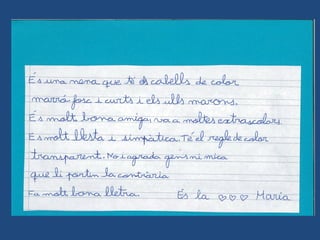 És una nena que té els cabells de color
marró fosc i curts i els ulls marrons.
És molt bona amiga, va a moltes extrascolars
Es molt llesta i simpàtica. Té el regle de color
transparent. No i agrada gens ni mica
que li portin la contrària
Fa molt bona lletra. És la ♡♡♡ María